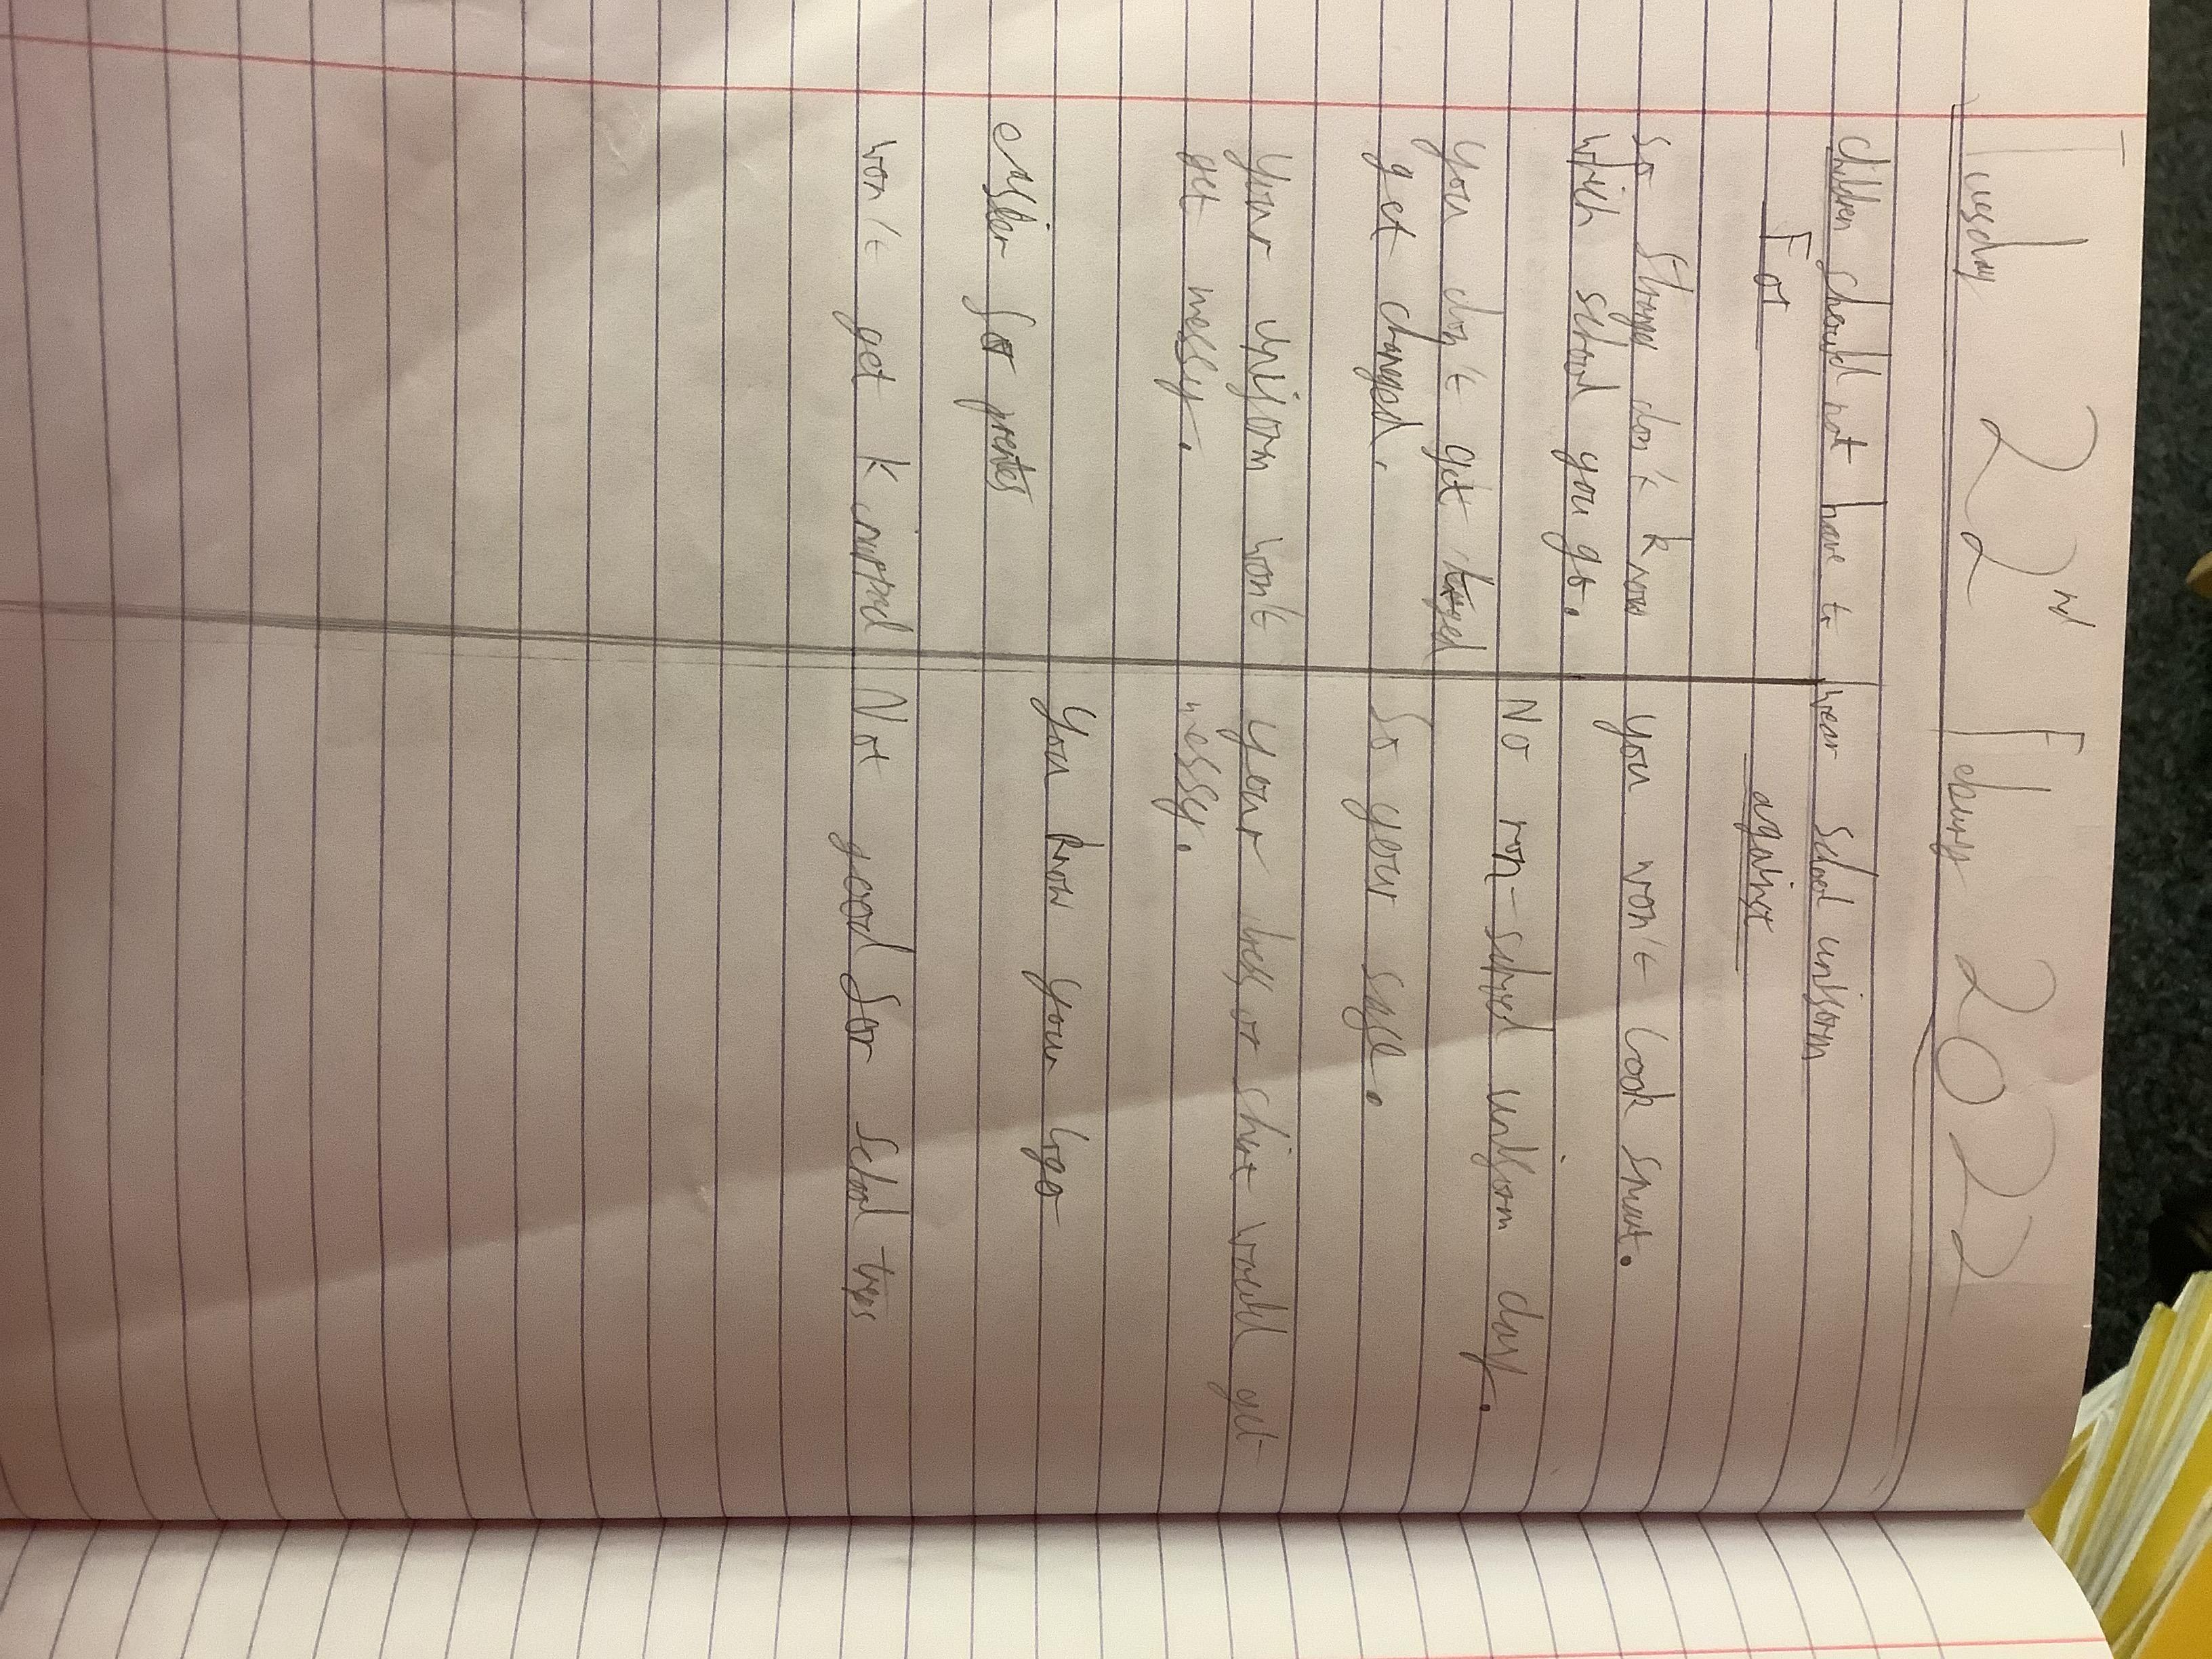 Tuesday 22nd Febuary 2022
Children should not have to wear school uniform
For against
So strangers don't know
wich school you go.
You don't get
get changed.
Your uniform won't
get messy.
easier for prentes
won't get kinapped
You won't look smart.
No non-school uniform day.
So your safe.
Your dress or shirt would get
messy.
You know your logo
Not good for school trips